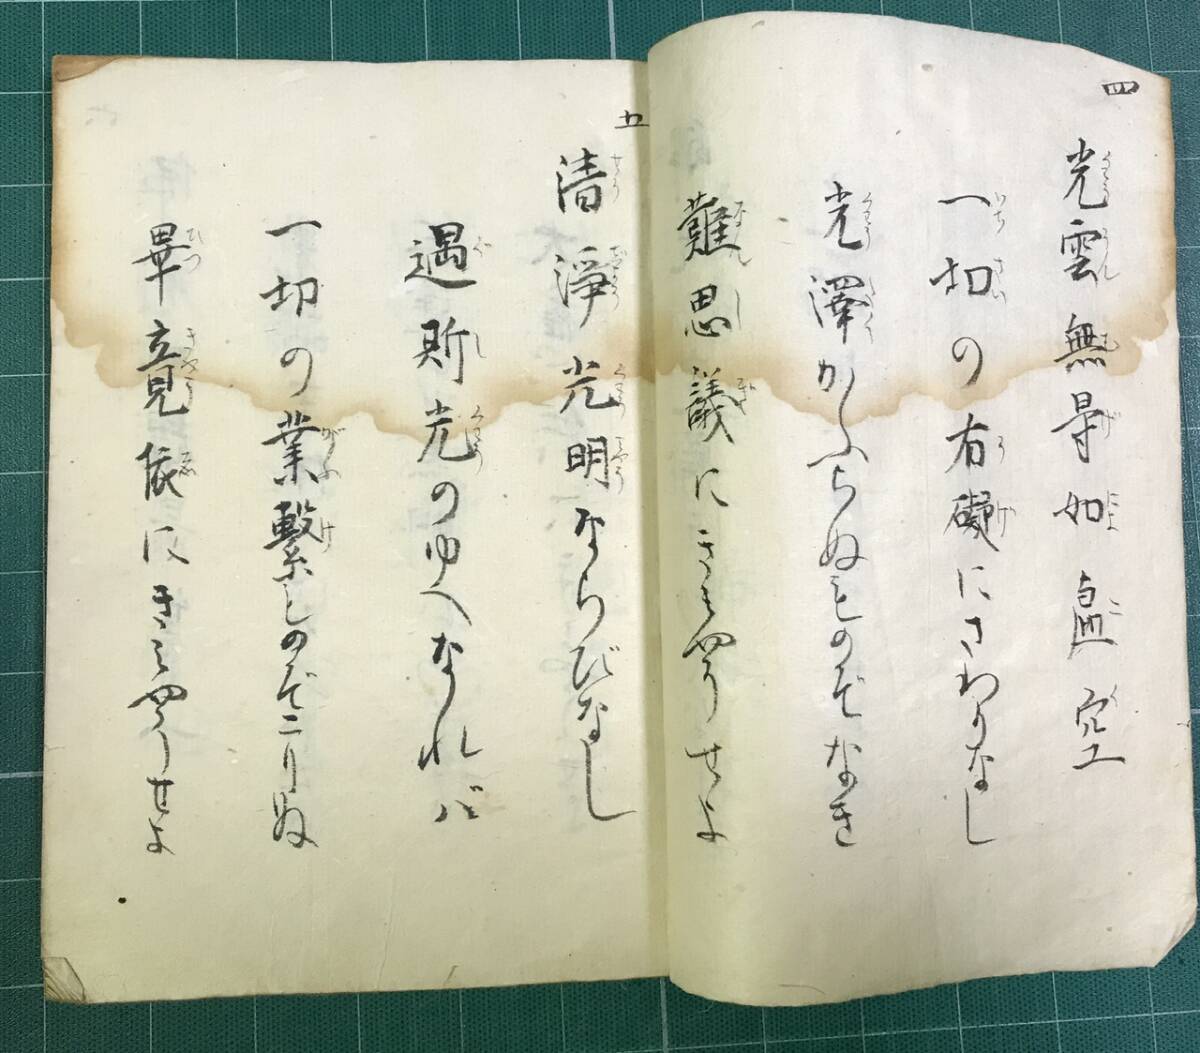 四
光雲無量如虚空
一切の有礙にさわりなし
光澤かふらぬものぞなき
難思議にきみやうせよ
五
清淨光明ならびなし
遇斯光のゆへなれバ
一切の業繋ものぞこりぬ
畢竟依にきみやうせよ